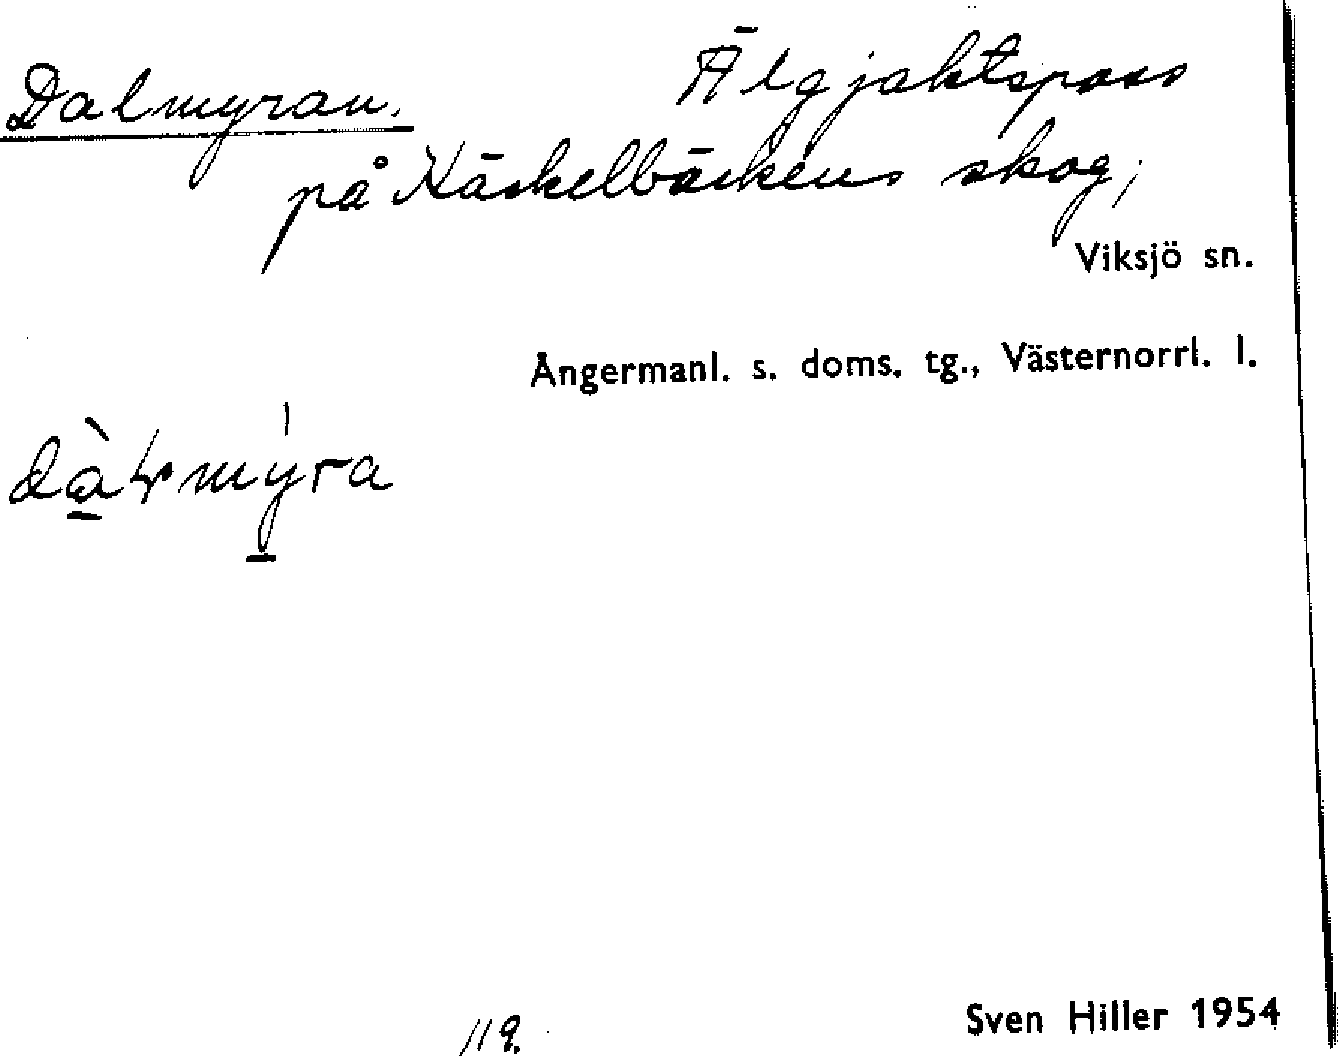 Dalmyran. Älgjaktspass
på Häckelbäckens skog,
Viksjö sn.
Ångermanl. s. doms. tg., Västernorrl. l.
119.
Sven Hiller 1954